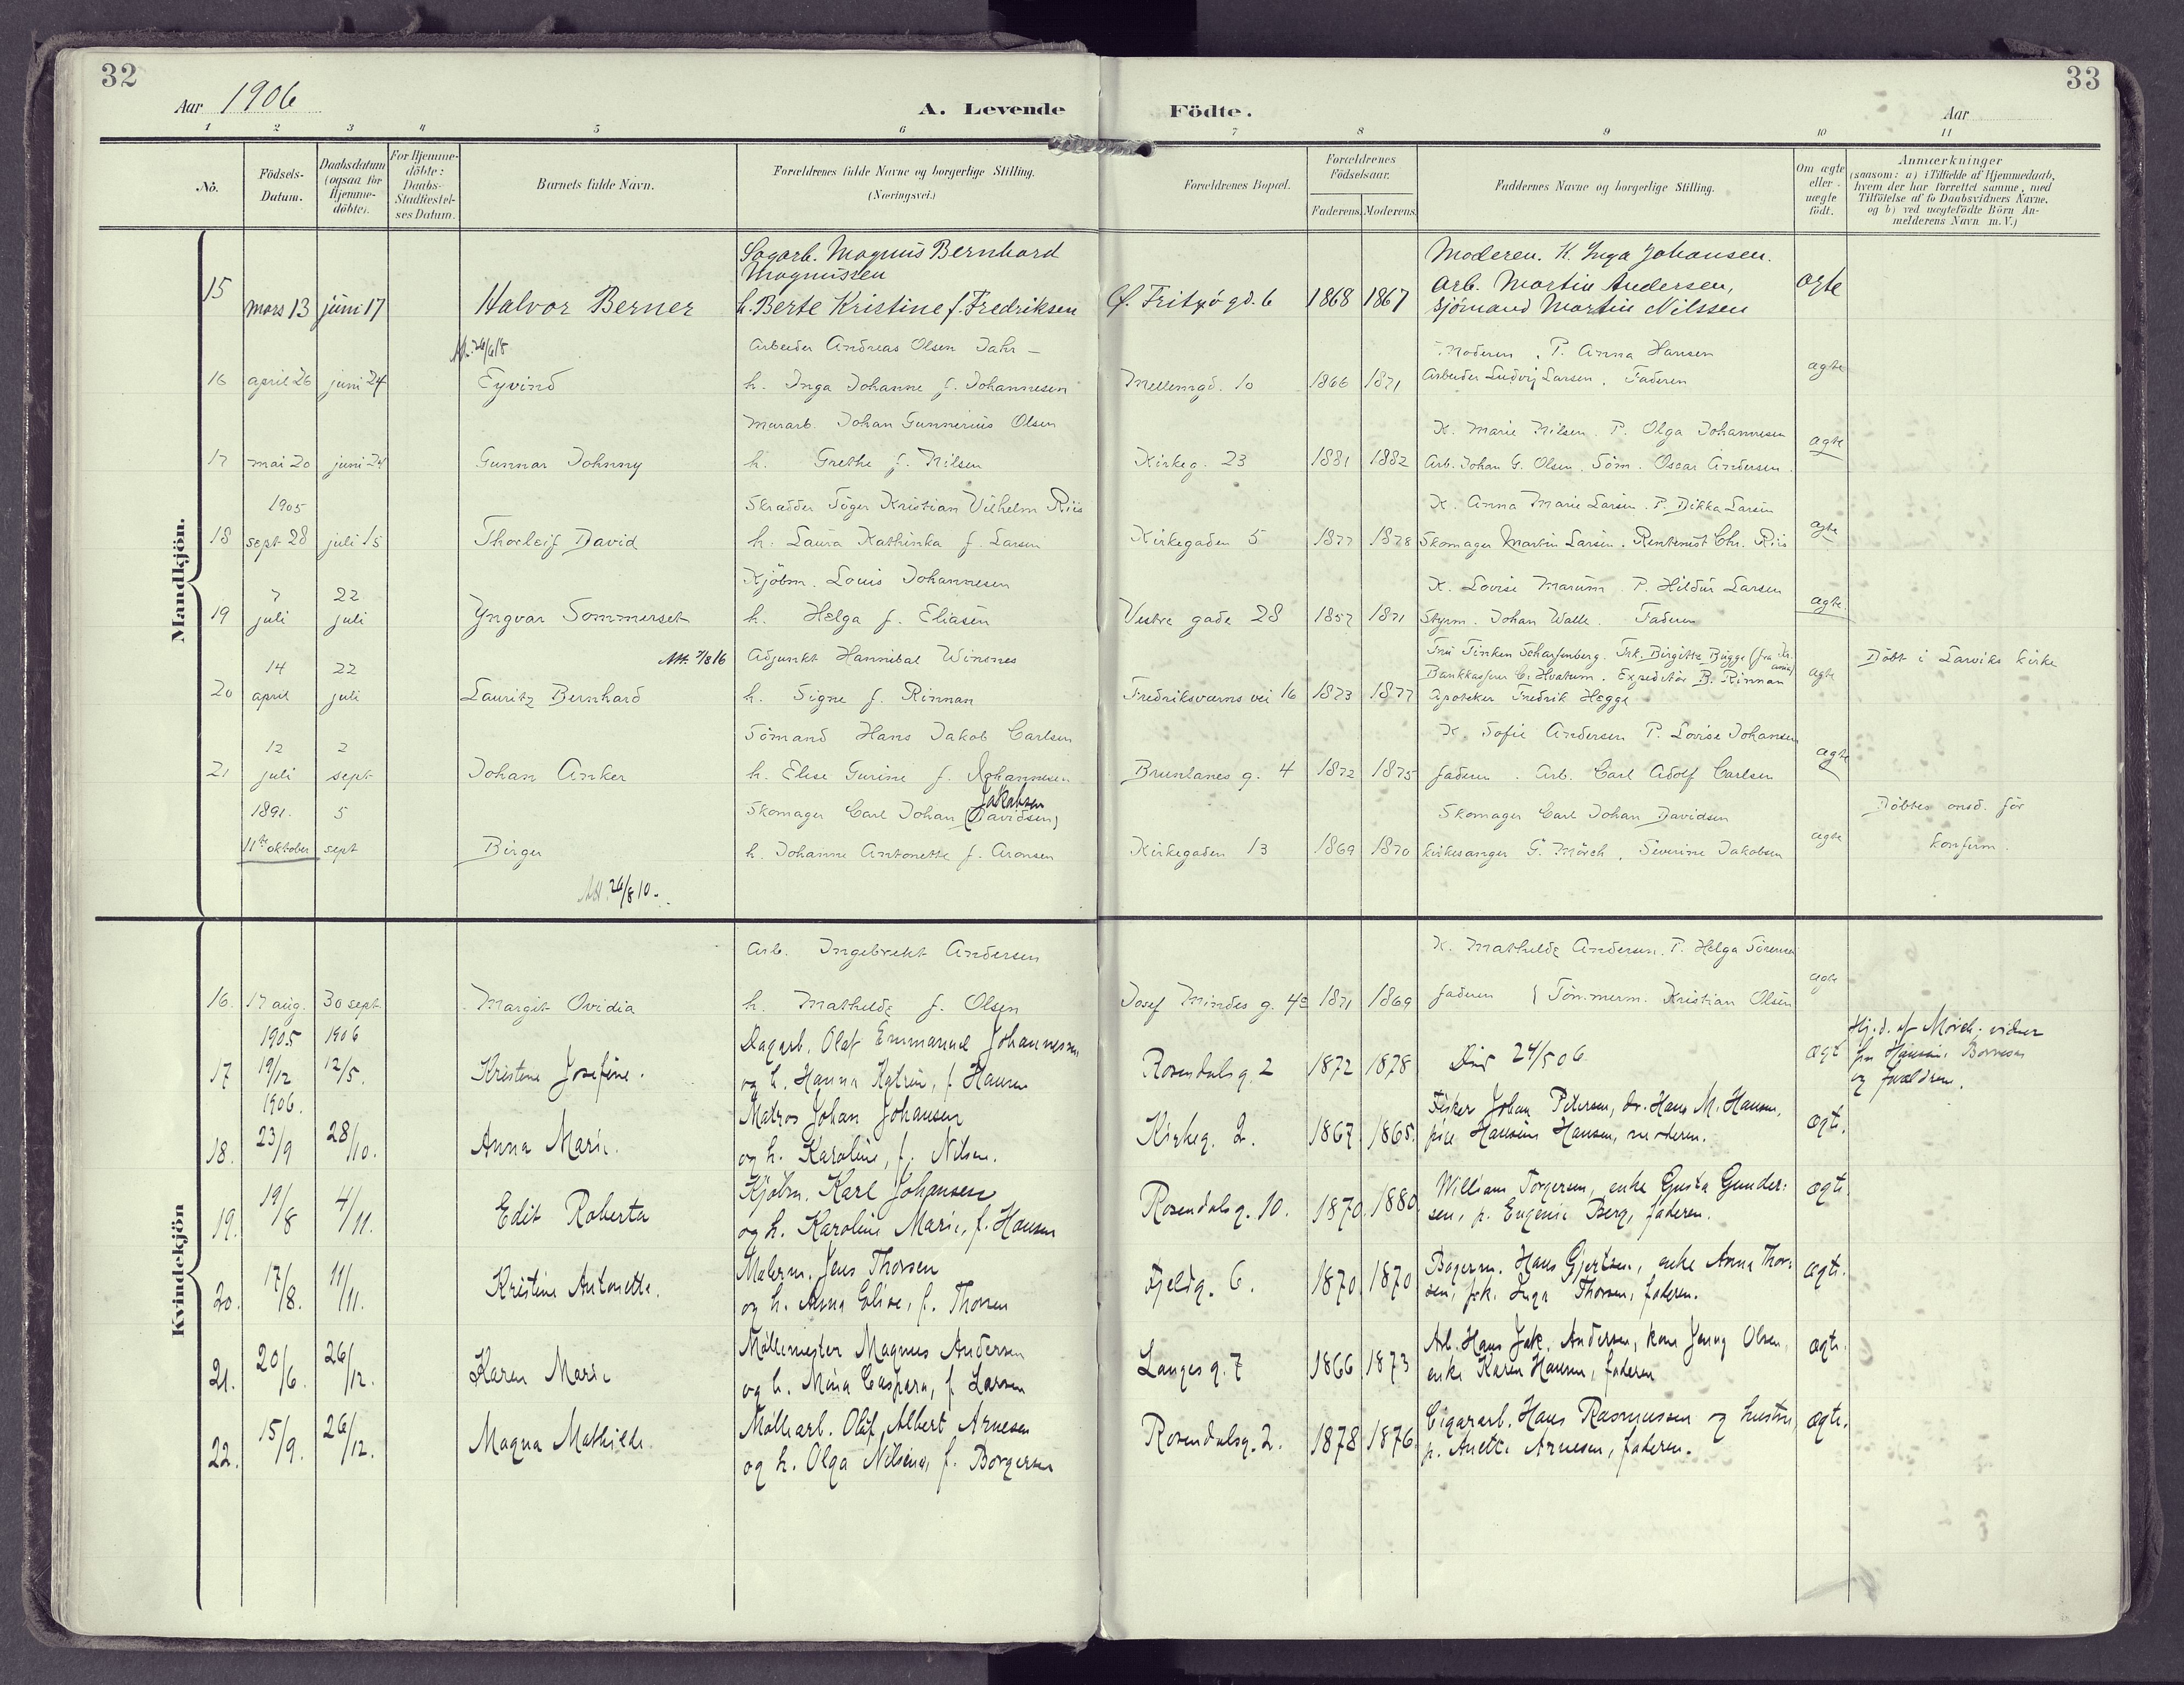 32
33
Aar 1906
A. Levende Födte.
Aar
1 2 3 4 5 6 7 8 9 10 11
No.
Födsels-
Datum.
Daabsdatum
(ogsaa for
Hjemme-
döbte).
For Hjemme-
döbte:
Daabs-
Stadfæstel-
ses Datum.
Barnets fulde Navn.
Forældrenes fulde Navne og borgerlige Stilling.
(Næringsvei.)
Forældrenes Bopæl.
Forældrenes
Födselsaar.
Faderens. Moderens.
Faddernes Navne og borgerlige Stilling.
Om ægte
eller
uægte
födt.
Anmærkninger
(saasom: a) i Tilfælde af Hjemmedaab,
hvem der har forrettet samme, med
Tilföielse af to Daabsvidners Navne.
og b) ved uægtefödte Börn An-
melderens Navn m. V.)
Mandkjön.
Sagarb. Magnus Bernhard Moderen. K. Inga Johansen.
Magnussen
15 mars 13 juni 17 Halvor Berner h. Berte Kristine f. Fredriksen Ø. Fritzø gd. 6 1868 1867 Arb. Martin Andersen, ægte
Sjömand Martin Nilssen
Att. 26/6/8 Arbeider Andreas Olsen Jahr – Moderen, P. Anna Hansen
16 april 26 juni 24 Eyvind h. Inga Johanne f. Johannesen Mellemgd. 10 1866 1871 Arbeider Ludvig Larsen. Faderen ægte
Murarb. Johan Gunnerius Olsen K. Marie Nilsen. P. Olga Johannesen
17 mai 20 juni 24 Gunnar Johnny h. Grethe f. Nilsen Kirkeg. 23 1881 1882 Arb. Johan G. Olsen. Söm. Oscar Andersen. ægte
1905 Skrædder Töger Kristian Vilhelm Riis K. Anna Marie Larsen. P. Dikka Larsen
18 sept 28 juli 15 Thorleif David h. Laura Kathinka f. Larsen Kirkegaden 5 1877 1878 Skomager Martin Larsen. Rentenist Chr. Riis ægte
7 22 Kjöbm. Louis Johannesen K. Lovise Marum. P. Hildur Larsen
19 juli juli Yngvar Sommerset h. Helga f. Eliasen Vestre gade 28 1857 1871 Styrm. Johan Walle. Faderen ægte.
Att. 7/8 16 Adjunkt Hannibal Winsnes Fru Tinken Scharfenberg. Frk. Birgitte Bugge (fra Kr.ania)
14 22 Bankkasserer C. Hvatum. Expeditör B. Rinnan Döbt i Larviks kirke
20 april juli Lauritz Bernhard h. Signe f. Rinnan Fredriksværns vei 16 1873 1877 Apoteker Fredrik Hegge ægte
12 2 Sömand Hans Jakob Carlsen K. Sofie Andersen P. Lovise Johansen
21 juli sept Johan Anker h. Elise Gurine f. Johannesen Brunlanes g. 4 1872 1875 Faderen. Arb. Carl Adolf Carlsen ægte
Jakobsen
1891. 5 Skomager Carl Johan (Davidsen) Skomager Carl Johan Davidsen Döbtes onsd. för
11te oktober sept Birger h. Johanne Antonette f. Aronsen Kirkegaden 13 1869 1870 Kirkesanger G. Mörch. Severine Jakobsen ægte konfirm.
Att. 26/8 10.
Kvindekjön
Arb. Ingebrekt Andersen K. Mathilde Andersen. P. Helga Sörensen
16. 17 aug. 30 sept. Margit Ovidia h. Mathilde f. Olsen Josef Mindes g. 4 1871 1869 Faderen Tömmerm. Kristian Olsen ægte
1905 1906 Dagarb. Olaf Emmanuel Johannessen Hj. d. af Mörch. vidner
17 19/12 12/5. Kristine Josefine. og h. Hanna Katrin, f. Hansen Rosendalsg. 2 1872 1878 Död 24/5 06 ægt
og foreldrene.
1906. Matros Johan Johansen Fisker Johan Petersen, do. Hans M. Hansen,
18. 23/9 28/10. Anna Marie. og h. Karoline, f. Nilsen. Kirkeg. 2. 1867 1865. pike Hansine Hansen, moderen. ægte.
19. 19/8 4/11. Edit Roberta Kjöbm. Karl Johansen Rosendalsg. 10. 1870 1880 William Torgersen, enke Gusta Gunder- ægte.
og h. Karoline Marie, f. Hansen sen, p. Eugenie Berg, faderen.
20. 17/8. 11/11. Kristine Antonette. Malerm. Jens Thorsen Fjeldg. 6. 1870 1870 Bagerm. Hans Gjertsen, enke Anna Thor- ægte.
og h. Anna Elise, f. Thorsen sen, frk. Inga Thorsen, faderen.
21. 20/6. 26/12. Karen Marie Möllemester Magnus Andersen Langes g. 7 1866 1873 Arb. Hans Jak. Andersen, kone Jenny Olsen, ægte.
og h. Mina Caspara, f. Larsen enke Karen Hansen, faderen
22. 15/9. 26/12. Magna Mathilde. Möllearb. Olaf Albert Arnesen Rosendalsg. 2. 1878 1876 Cigararb. Hans Rasmussen og hustru, ægte.
og h. Olga Nilsine, f. Borgersen p. Anette Arnesen, faderen.